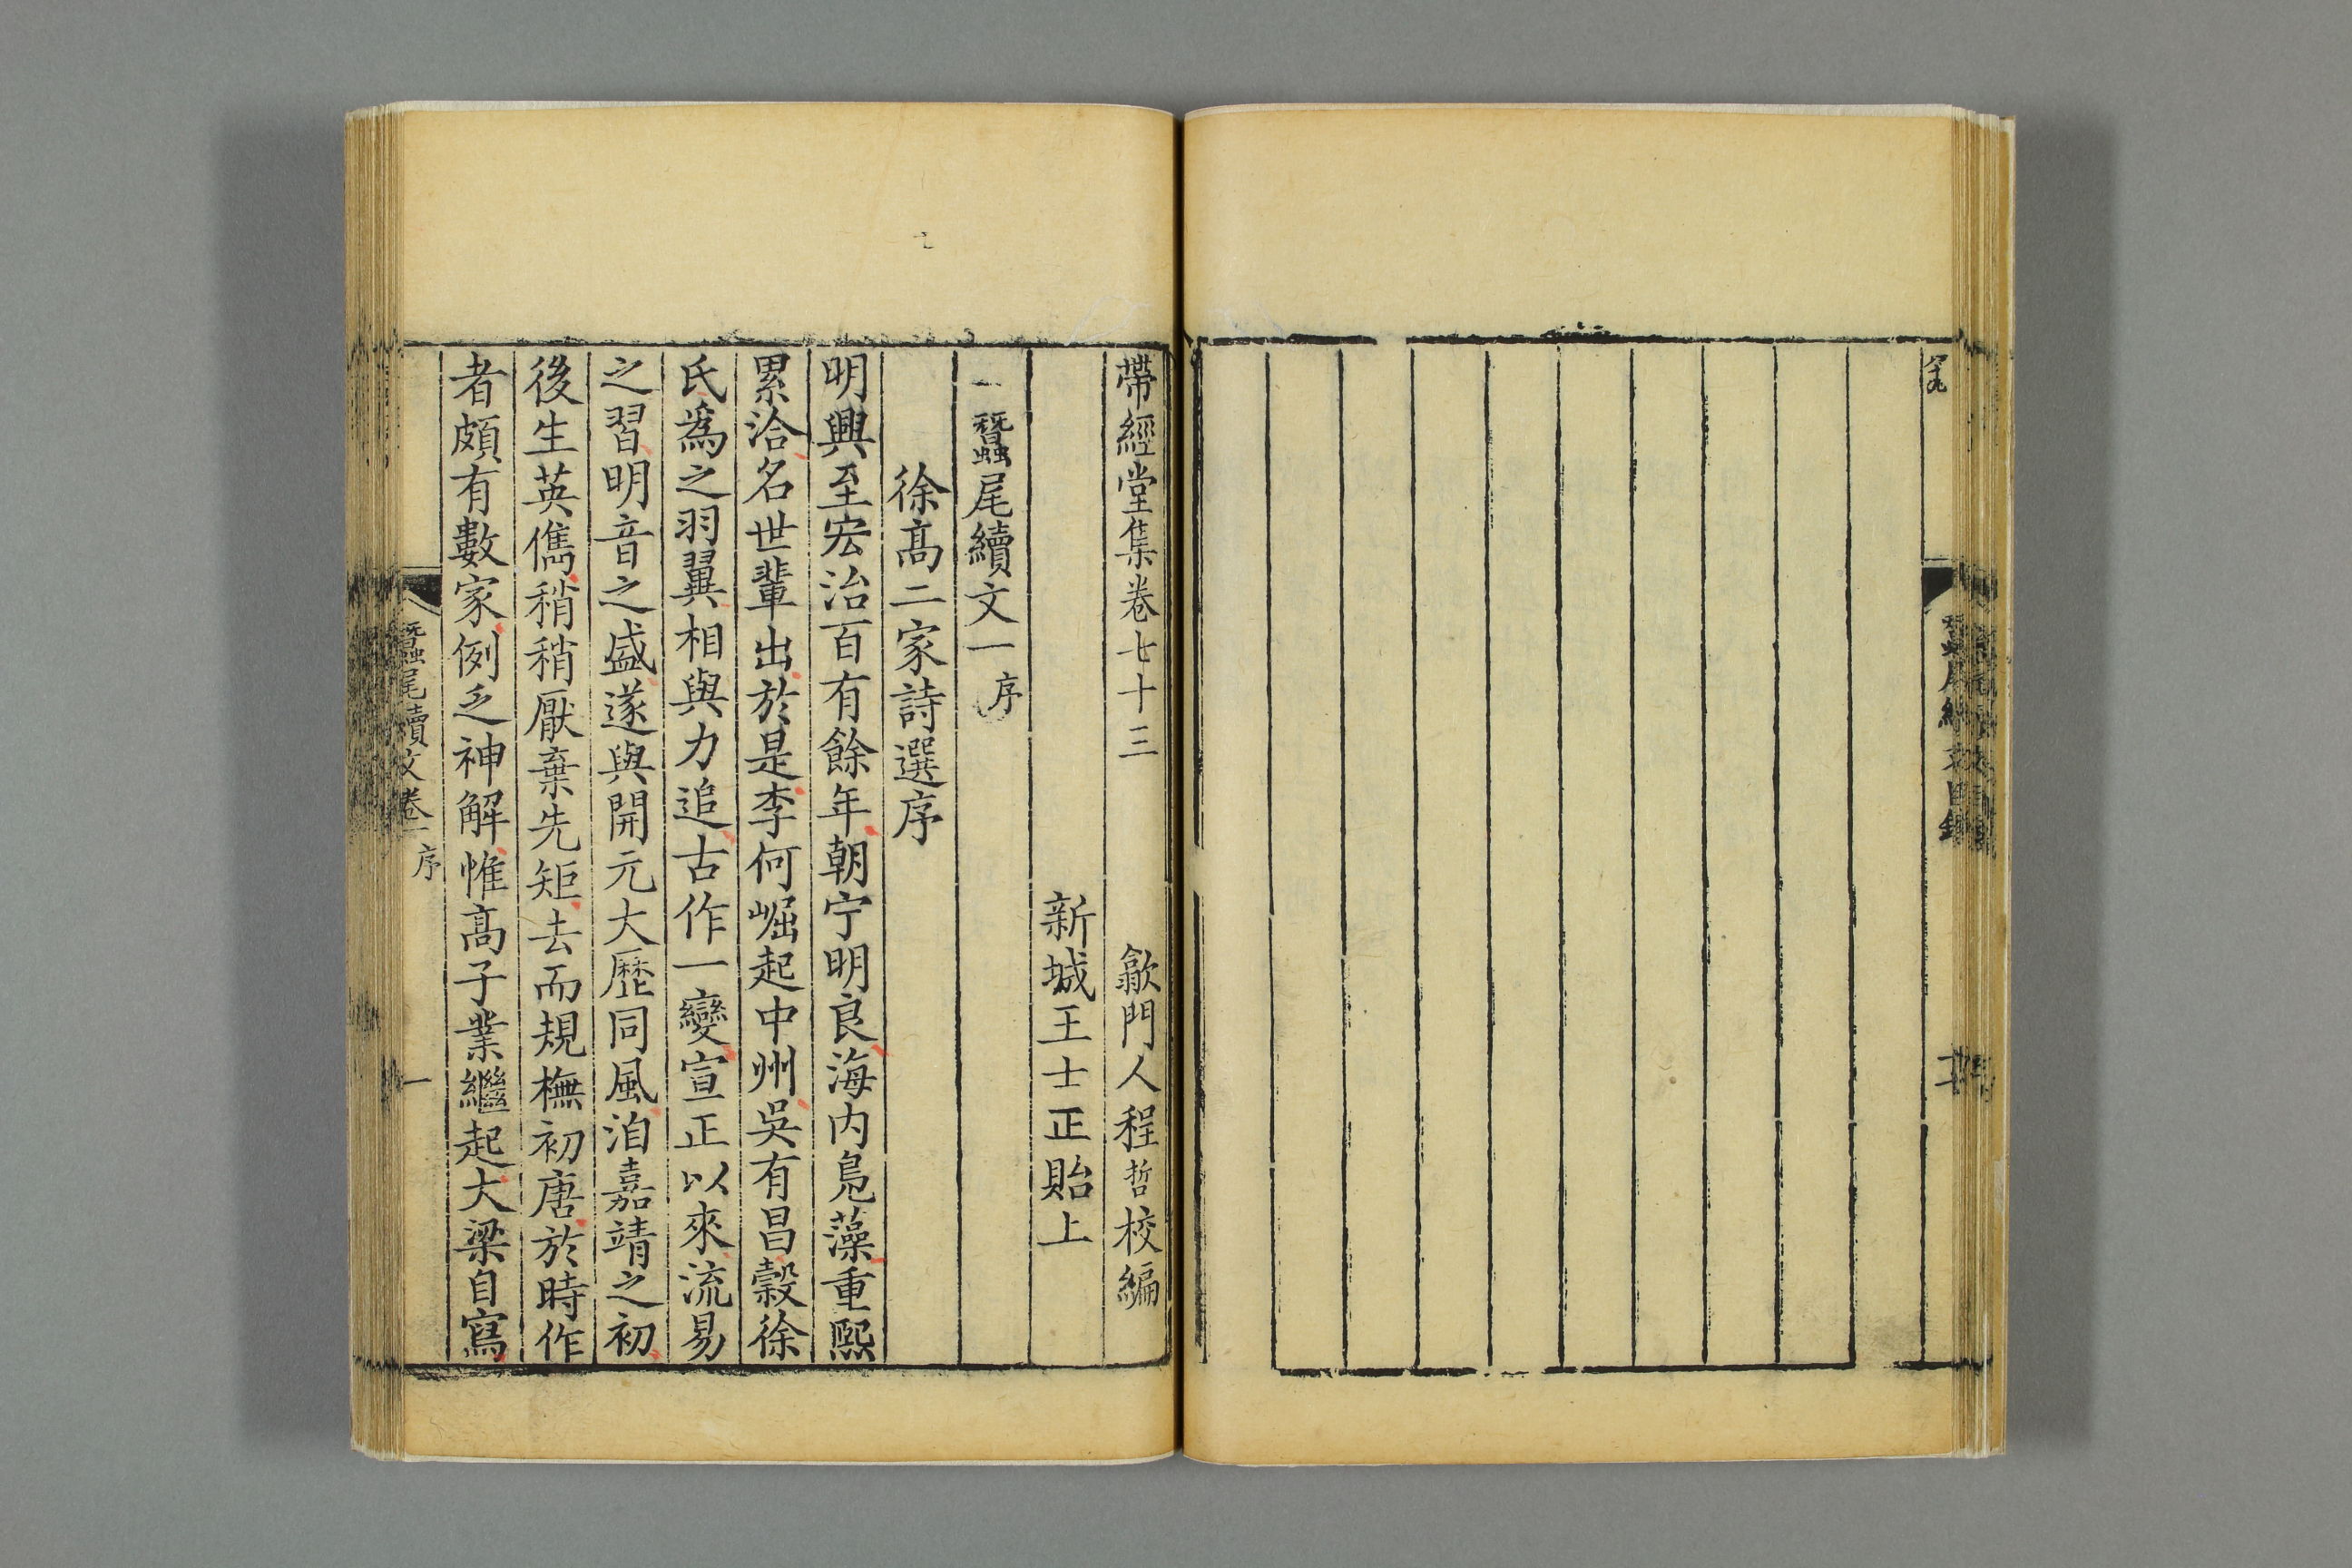 帶經堂集卷七十三 歙門人程哲校編
新城王士正貽上
蠶尾續文一 序
徐高二家詩選序
明興至宏治百有餘年朝宁明良海内凫藻重熙
累洽名世輩出於是李何崛起中州吳有昌穀徐
氏爲之羽翼相與力追古作一變宣正以來流易
之習明音之盛遂與開元大歷同風洎嘉靖之初
後生英儁稍稍厭棄先矩去而規橅初唐於時作
者頗有數家例乏神解惟高子業繼起大梁自寫
蠶尾續文卷一 序
一